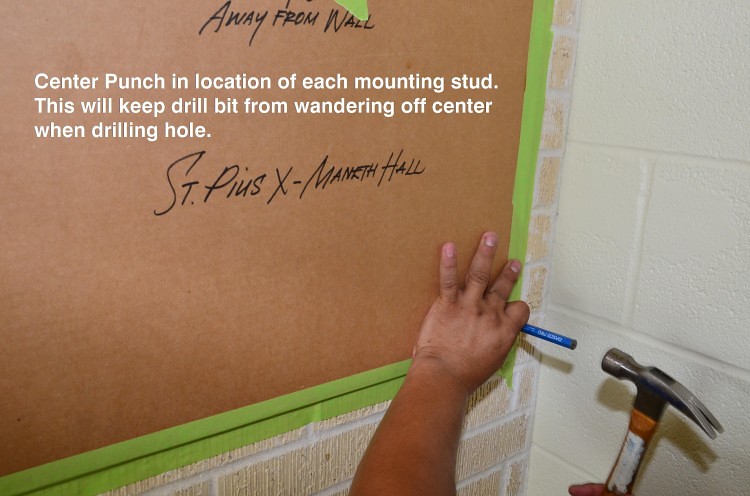 AWAY FROM WALL
Center Punch in location of each mounting stud.
This will keep drill bit from wandering off center
when drilling hole.
ST. PIUS X-MANETH HALL